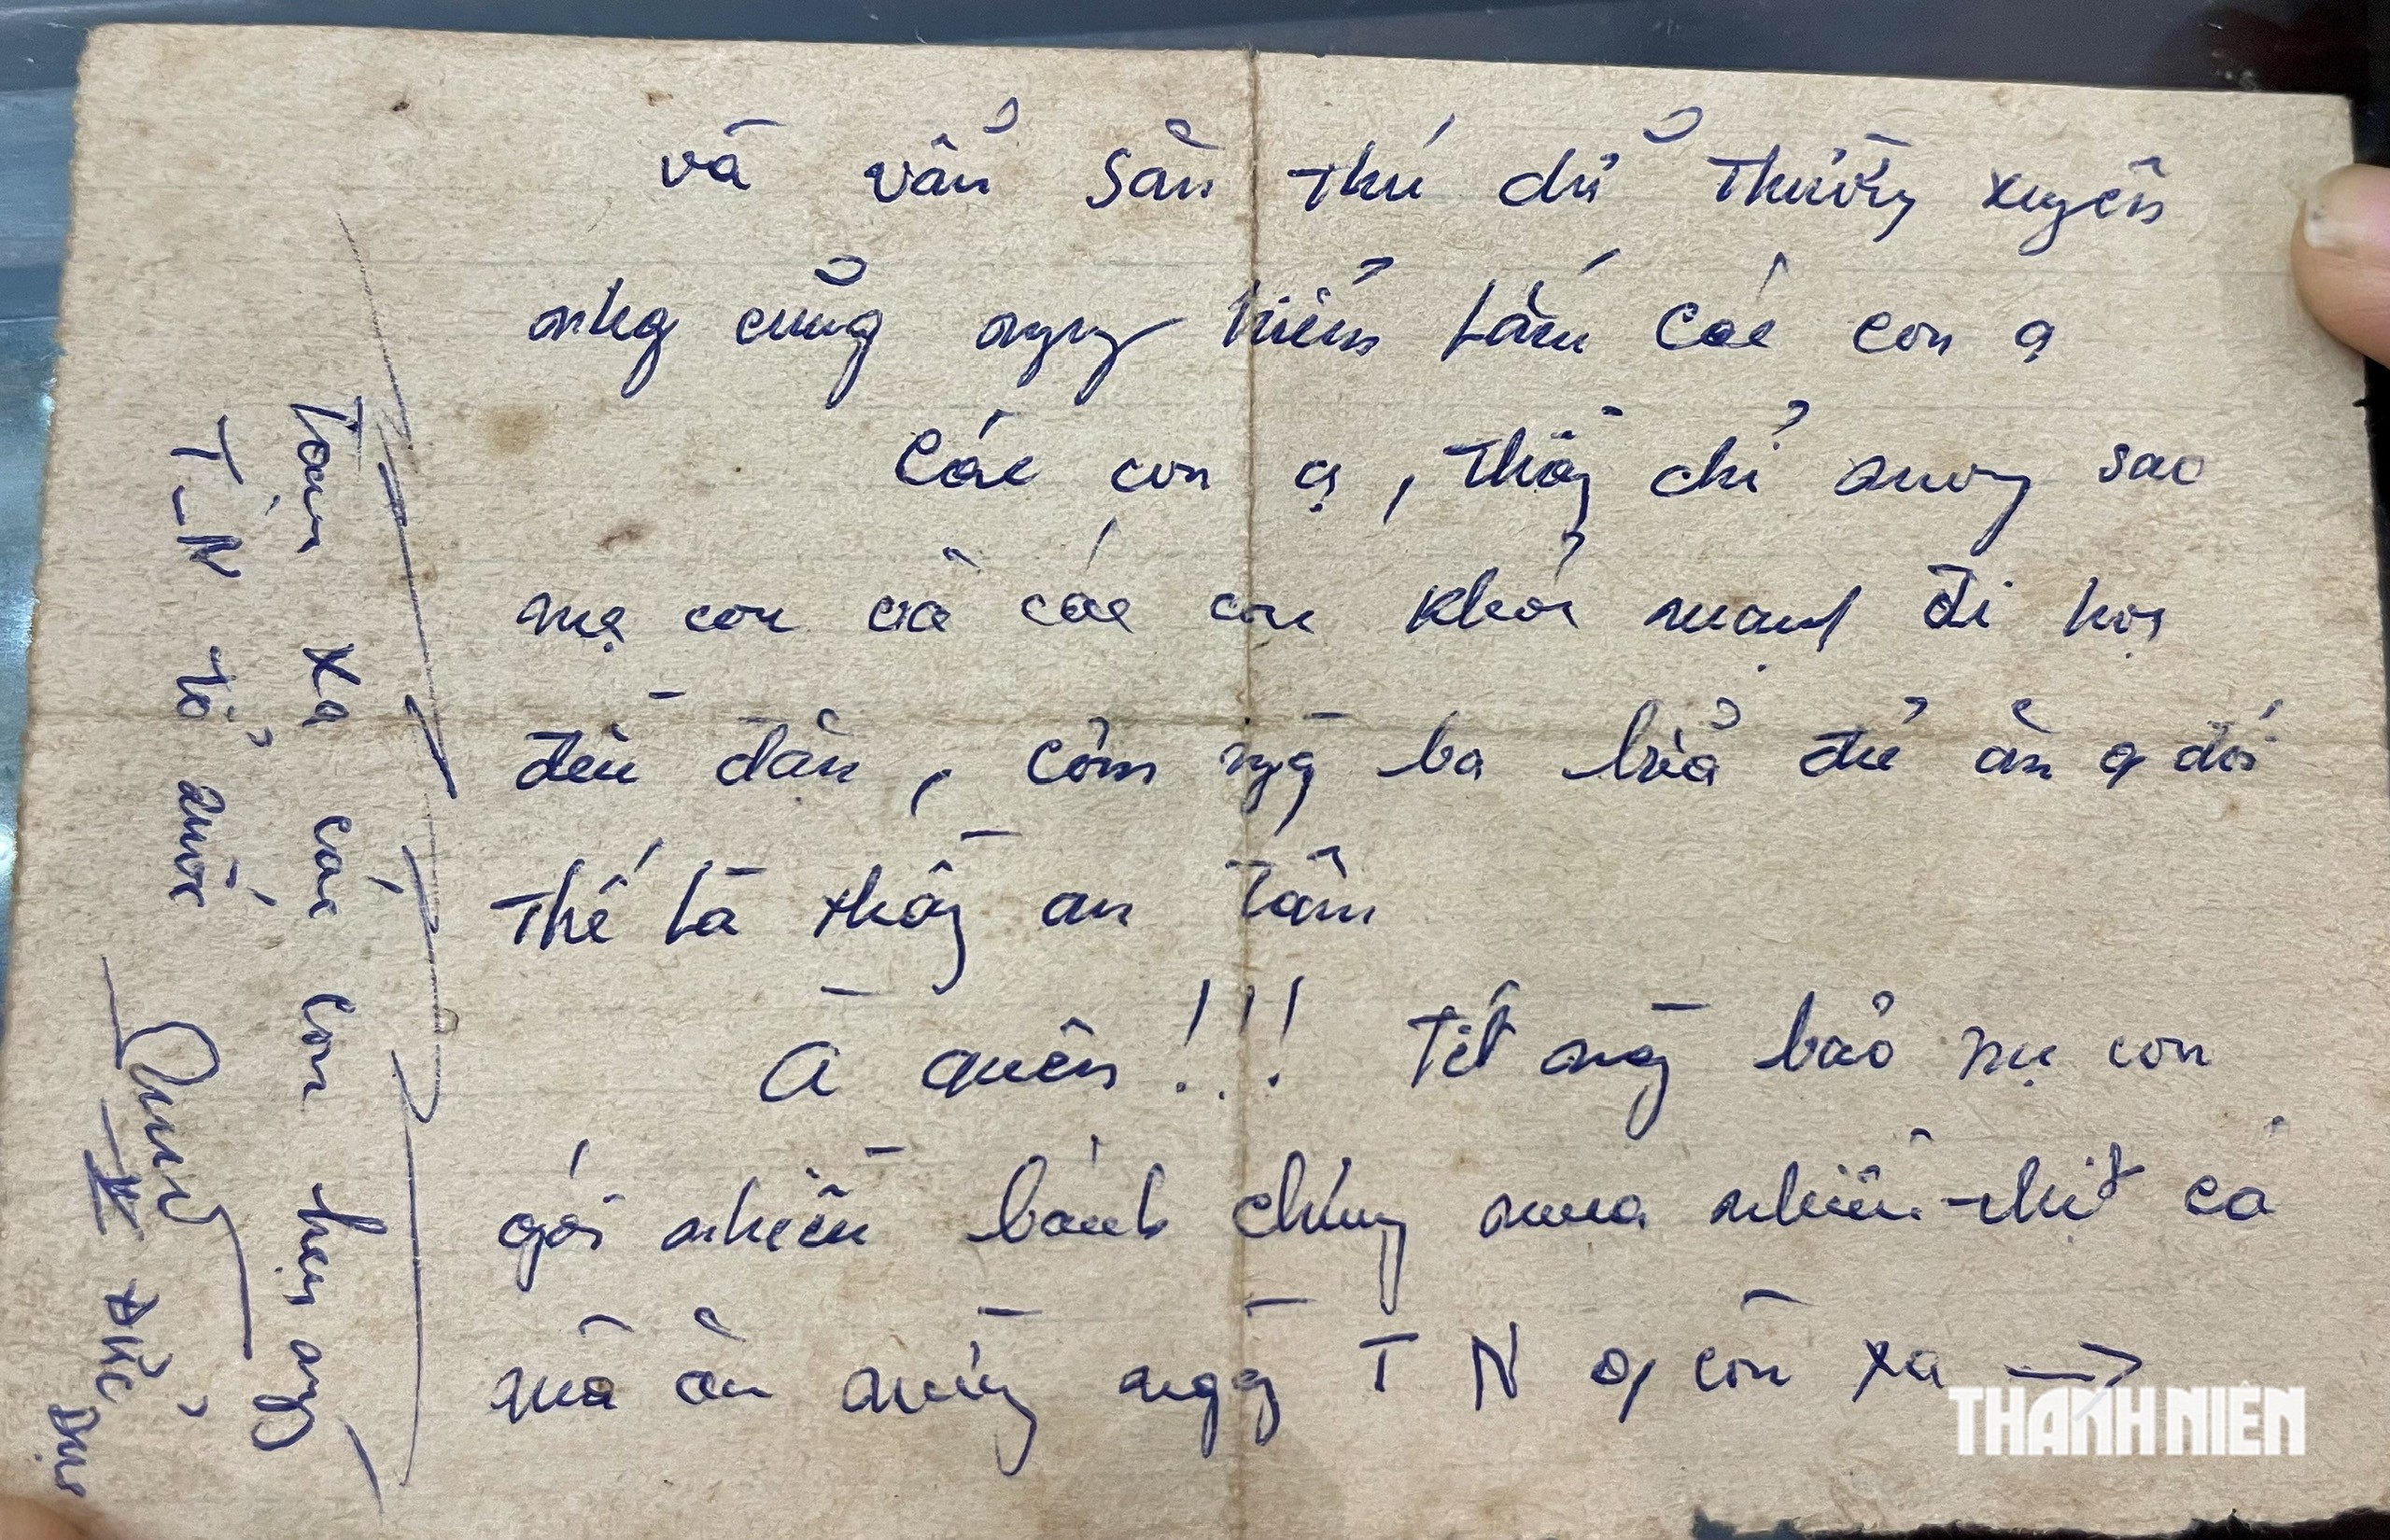 và vẫn săn thú dữ thường xuyên
nhg cũng nguy hiểm lắm các con ạ
Các con ạ, thầy chỉ mong sao
mẹ con và các con khỏe mạnh đi học
đều đặn, cơm ngày ba bữa đủ ăn q đói
Thế là thầy an tâm
À quên!!! Tết này bảo mẹ con
gói nhiều bánh chưng mua nhiều thịt cá
mà ăn mừng ngày T N q còn xa →
Tạm xa các con hẹn ngày
T_N tổ quốc
THANH NIÊN